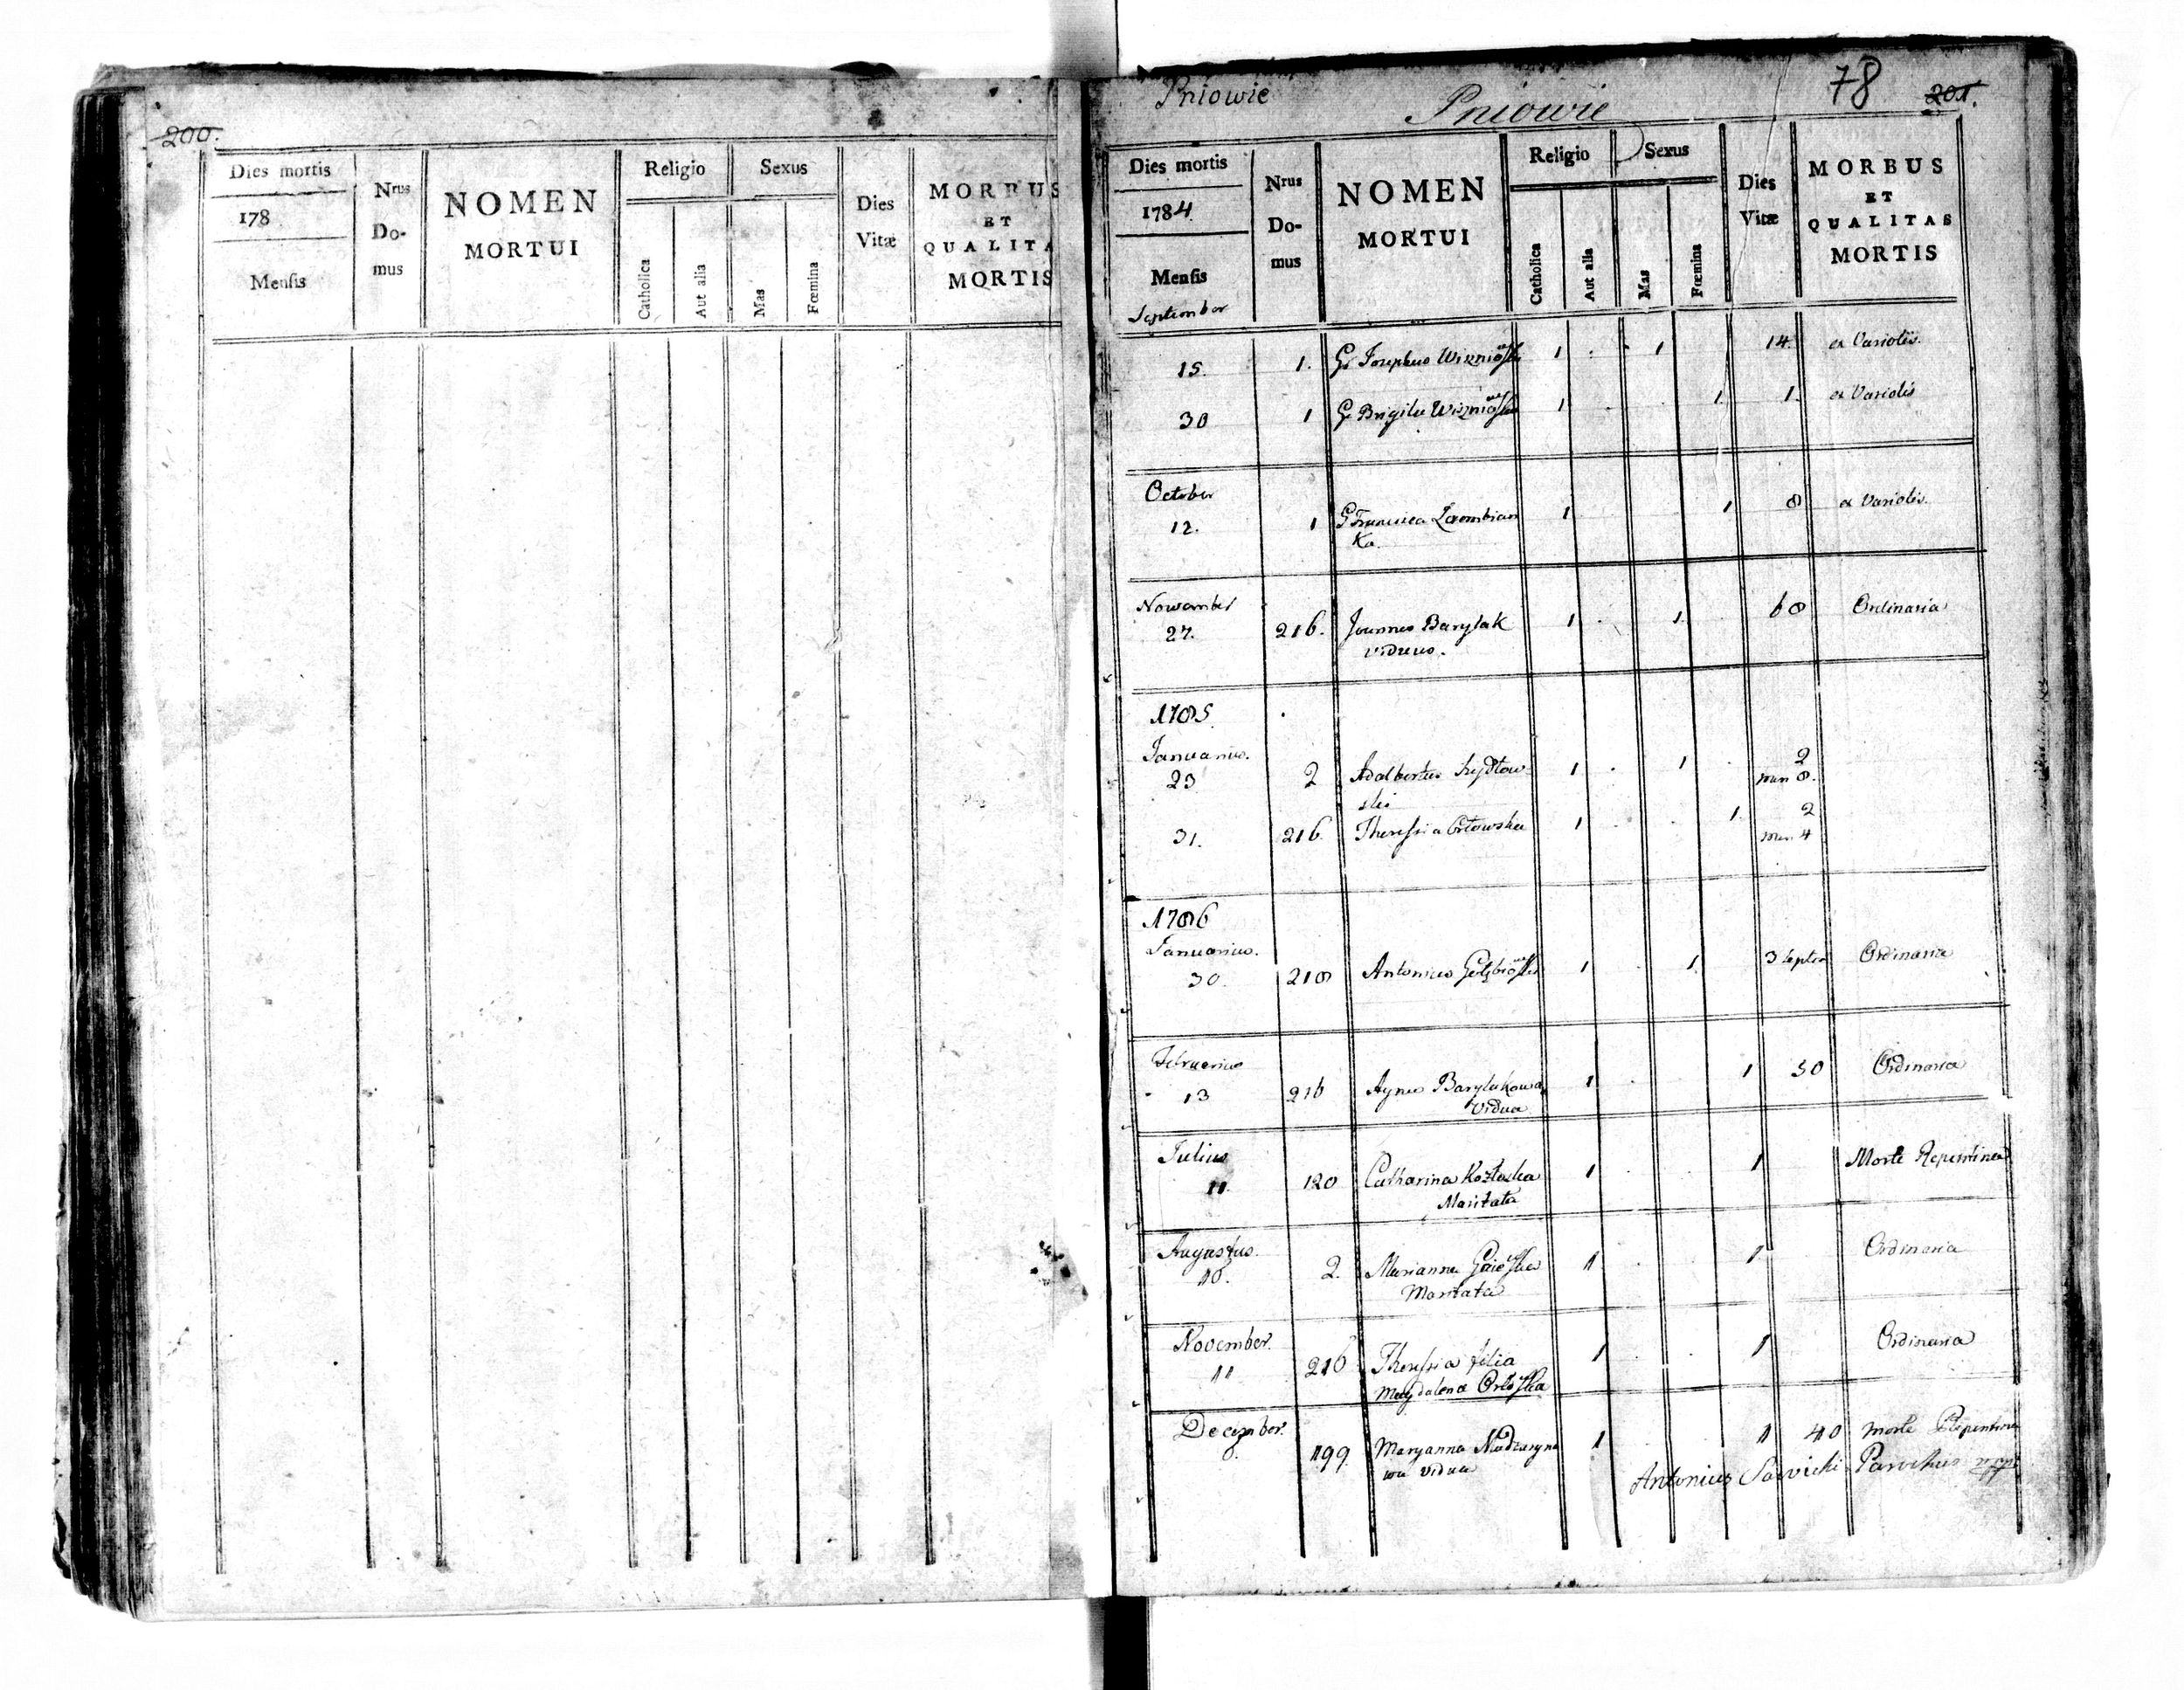 200.
Dies mortis
178
Mensis
Nrus
Do-
mus
NOMEN
MORTUI
Religio
Catholica
Aut alia
Sexus
Mas
Fœmina
Dies
Vitæ
MORBUS
ET
QUALITA
MORTIS
Pniowie
Pniowie
78
201.
Dies mortis
1784.
Mensis
September
Nrus
Do-
mus
NOMEN
MORTUI
Religio
Catholica
Aut alia
Sexus
Mas
Fœmina
Dies
Vitæ
MORBUS
ET
QUALITAS
MORTIS
15. 1. Josephus 1 1 14. ex Variolis.
30 1 1 1 1. ex Variolis
October
12. 1 1 1 8 ex Variolis.
Ka
Nowember
27. 216. Joannes Barylak 1 1. 60 Ordinaria
viduus.
1785.
Januarius.
23 2 Adalbertus Szydłow 1 1 2
ski men 8.
31. 216. Theressia Orłowska 1 1 2
men. 4
1786
Januarius.
30. 218 Antonius 1 1. 3 Ordinaria
Februarius
13 216 Barylakowa 1 1 50 Ordinaria
Vidua
Julius
11. 120 Catharina 1 1 Morte Repentinea
Maritata
Augustus.
10. 2. Marianna 1 1 Ordinaria
Maritata
November.
11 216 Theressia filia 1 1 Ordinaria
Magdalena
December.
8. 199. Maryanna 1 1 40 Morte
wa vidua
Antonius Sawicki Parochus